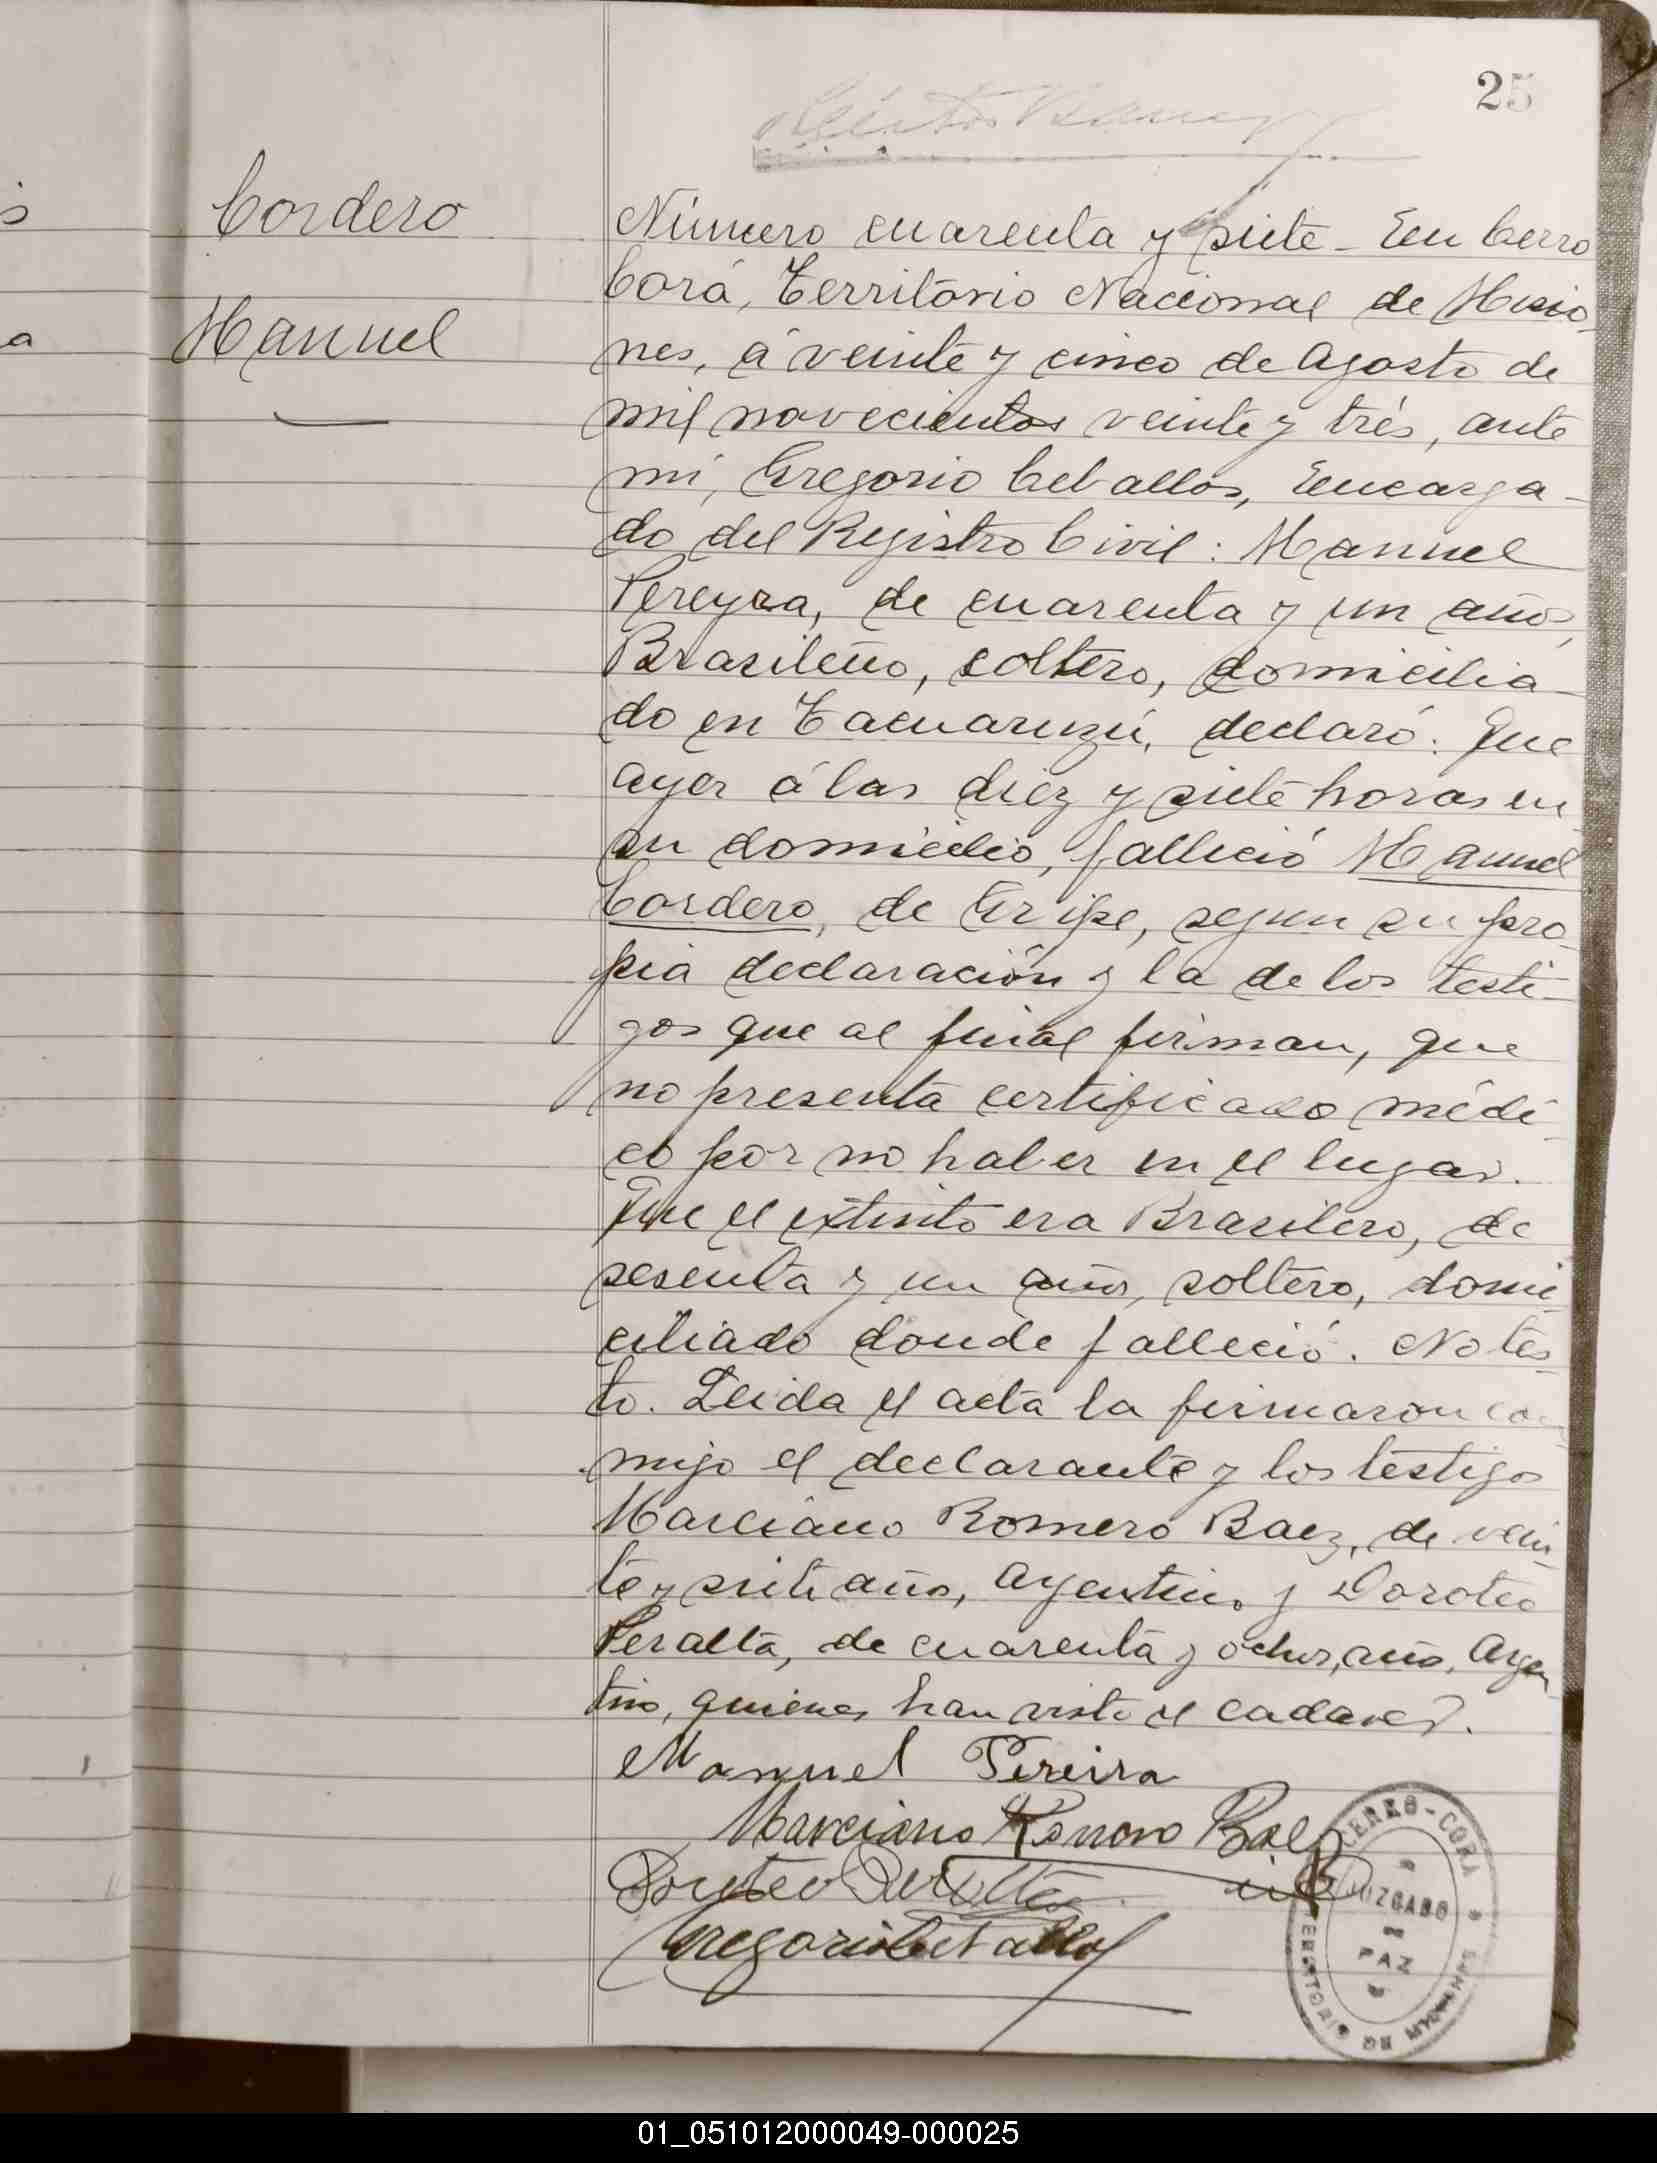 25
Cordero
Manuel
Número cuarenta y siete - En Cerro
Corá, Territorio Nacional de Misio-
nes, á veinte y cinco de Agosto de
mil novecientos veinte y trés, ante
mi, Gregorio Ceballos, Encarga-
do del Registro Civil: Manuel
Pereyra, de cuarenta y un años,
Brasileño, soltero, domicilia-
do en Tacuaruzú, declaró: Que
ayer á las diez y siete horas en
su domicilio, falleció Manuel
Cordero, de Gripe, segun su pro-
pia declaración y la de los testi-
gos que al final firman, que
no presenta certificado médi-
co por no haber en el lugar.
Que el extinto era Brasilero, de
sesenta y un años, soltero, domi-
ciliado donde falleció. No tes-
tó. Leida el acta la firmaron con-
migo el declarante y los testigos
Marciano Romero Baez, de vein-
te y siete años, Argentino y Doroteo
Peralta, de cuarenta y ocho años, Argen-
tino, quienes han visto el cadaver.
Manuel Pereira
Marciano Romero Baez
Doroteo Peralta
Gregorio Ceballos
CERRO-CORÁ
JUZGADO
DE
PAZ
TERRITORIO DE MISIONES
01_051012000049-000025